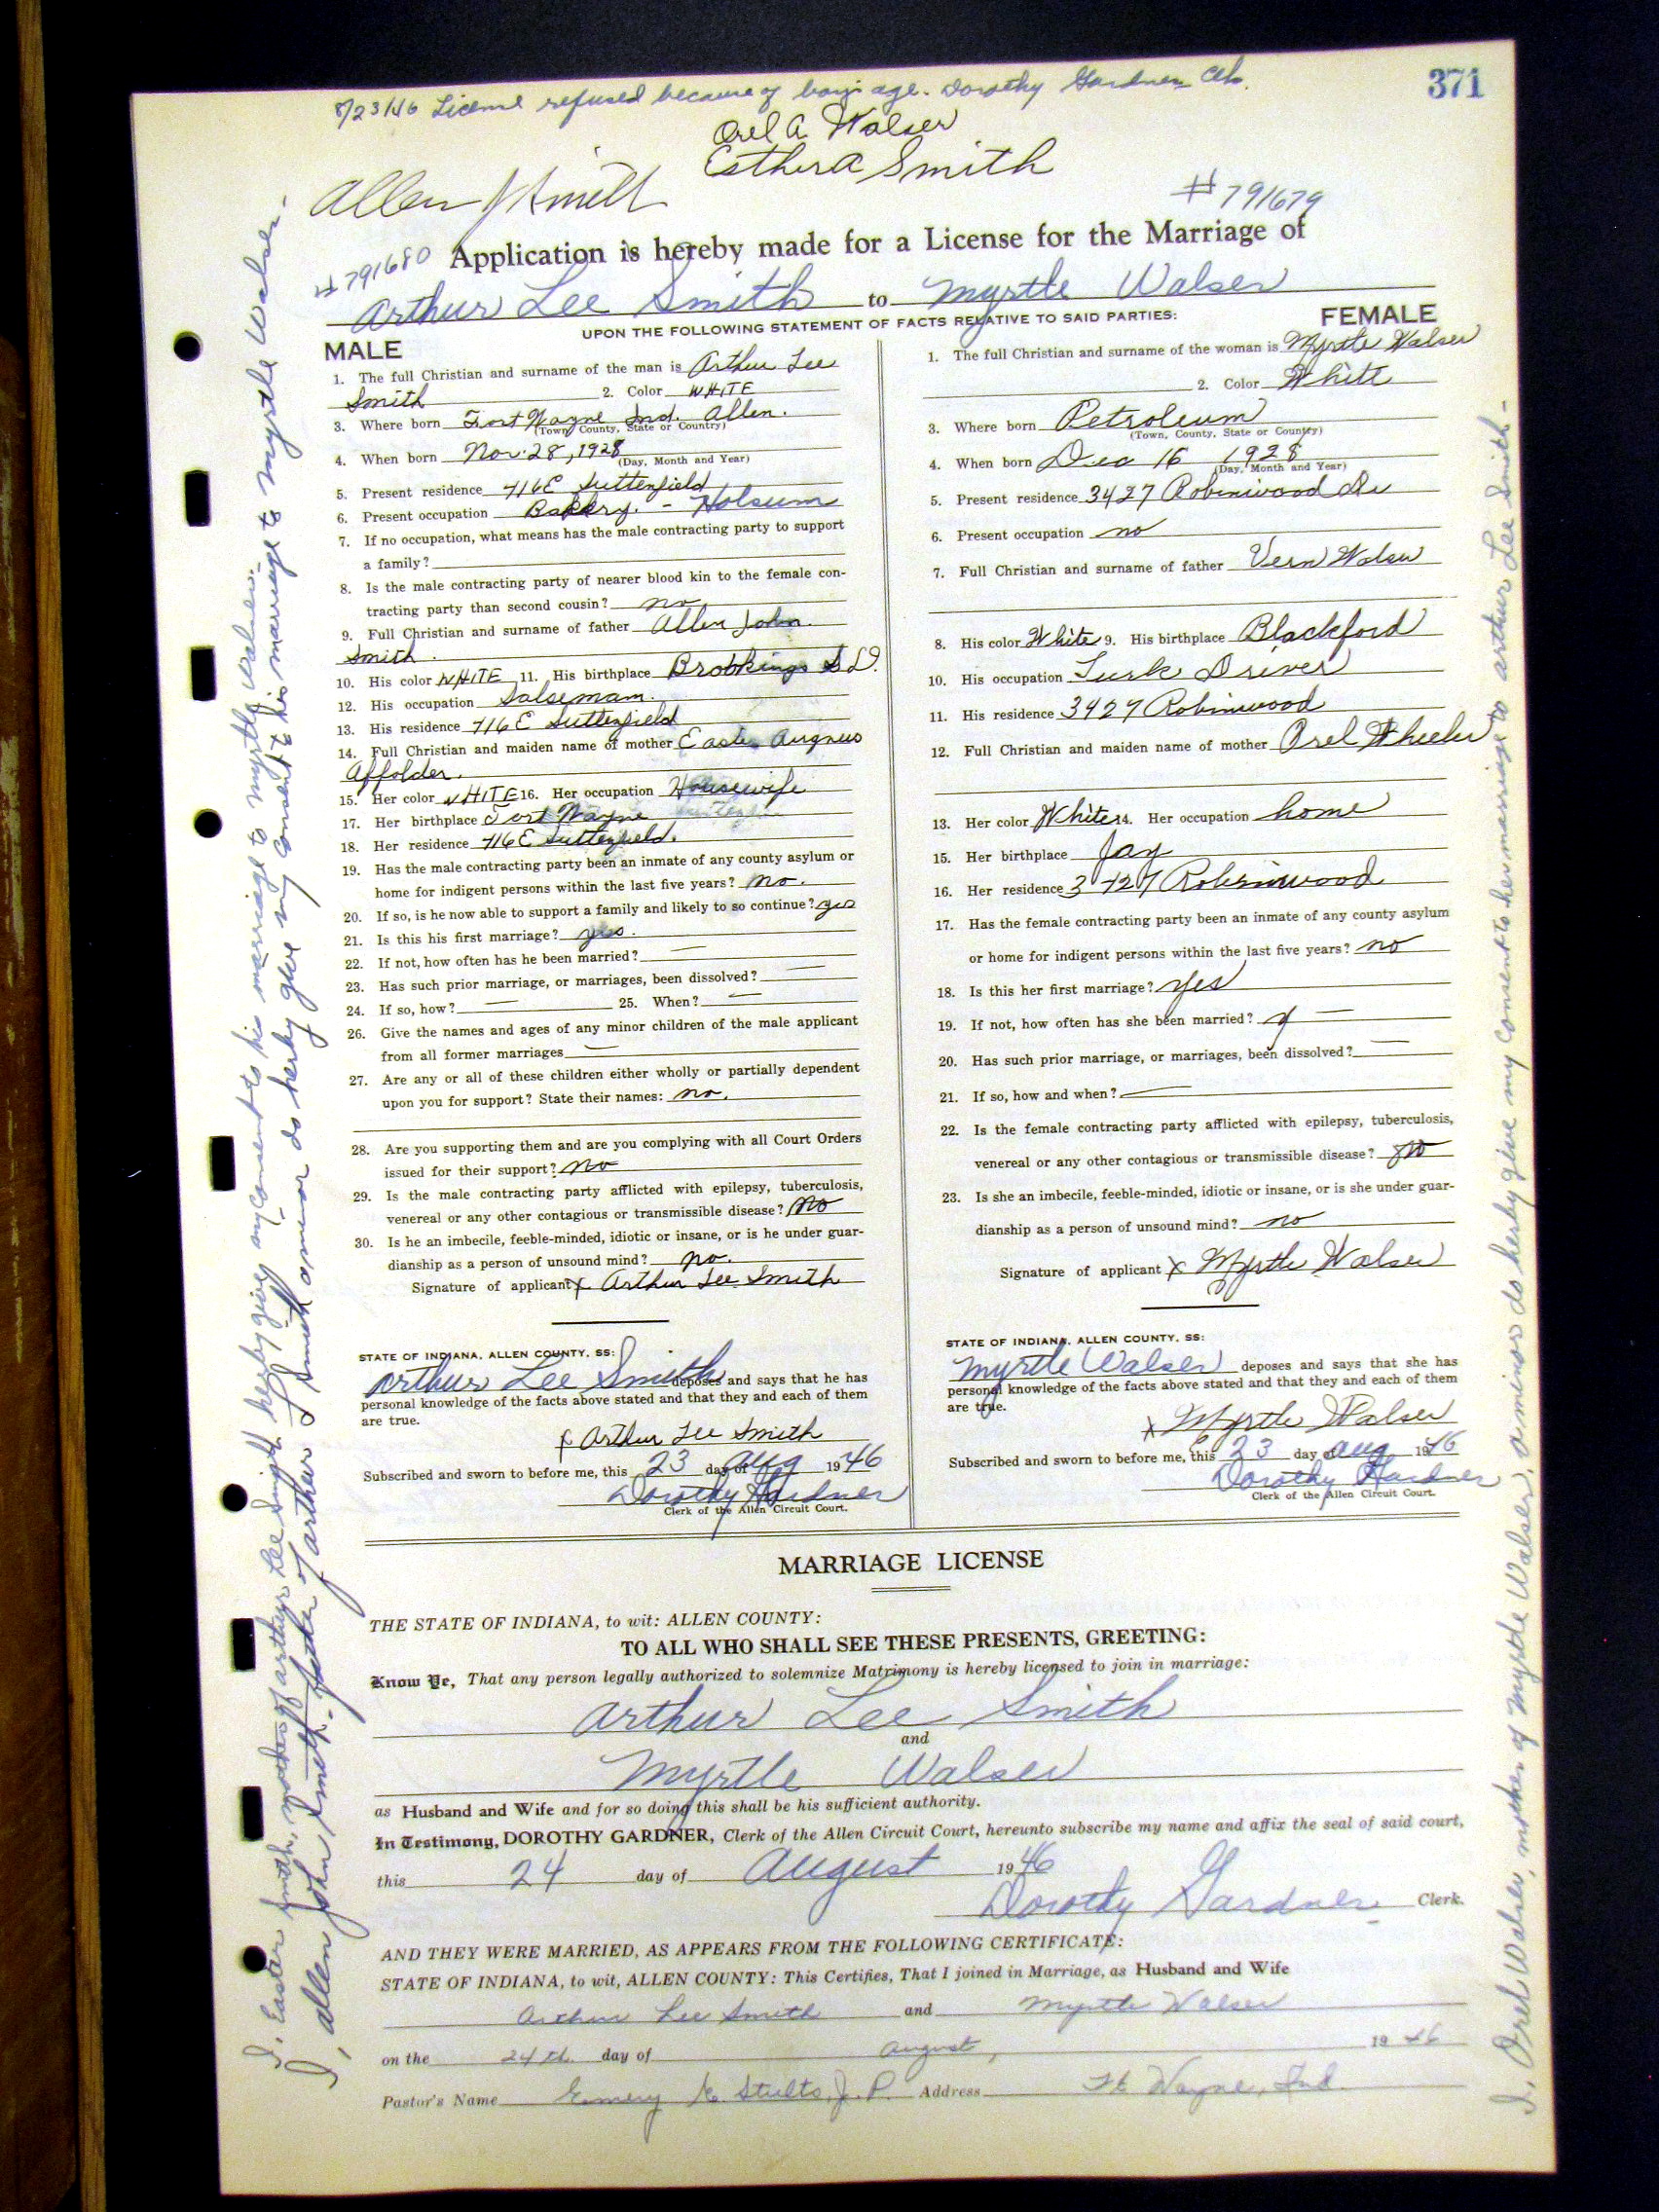 371
8/23/46 License refused because of boy's age. Dorothy Gardner Clk.
Orel A. Walser
Esther A Smith
Allen J Smith
# 791679
# 791680
Application is hereby made for a License for the Marriage of
Arthur Lee Smith to Myrtle Walser
UPON THE FOLLOWING STATEMENT OF FACTS RELATIVE TO SAID PARTIES:
MALE
1. The full Christian and surname of the man is Arthur Lee
Smith 2. Color WHITE
3. Where born Fort Wayne Ind. Allen.
(Town, County, State or Country)
4. When born Nov. 28, 1928
(Day, Month and Year)
5. Present residence 716 E Suttenfield
6. Present occupation Bakery. - Holsum
7. If no occupation, what means has the male contracting party to support
a family?
8. Is the male contracting party of nearer blood kin to the female con-
tracting party than second cousin? no
9. Full Christian and surname of father Allen John
Smith.
10. His color WHITE 11. His birthplace Brookings S D.
12. His occupation Salesmam.
13. His residence 716 E Suttenfield
14. Full Christian and maiden name of mother Easter Augneus
Affolder.
15. Her color WHITE 16. Her occupation Housewife
17. Her birthplace Fort Wayne
18. Her residence 716 E Suttenfield.
19. Has the male contracting party been an inmate of any county asylum or
home for indigent persons within the last five years? no.
20. If so, is he now able to support a family and likely to so continue? yes
21. Is this his first marriage? yes.
22. If not, how often has he been married? —
23. Has such prior marriage, or marriages, been dissolved? —
24. If so, how? — 25. When? —
26. Give the names and ages of any minor children of the male applicant
from all former marriages —
27. Are any or all of these children either wholly or partially dependent
upon you for support? State their names: no.
28. Are you supporting them and are you complying with all Court Orders
issued for their support? no
29. Is the male contracting party afflicted with epilepsy, tuberculosis,
venereal or any other contagious or transmissible disease? no
30. Is he an imbecile, feeble-minded, idiotic or insane, or is he under guar-
dianship as a person of unsound mind? no.
Signature of applicant x Arthur Lee Smith
STATE OF INDIANA, ALLEN COUNTY, SS:
Arthur Lee Smith deposes and says that he has
personal knowledge of the facts above stated and that they and each of them
are true.
x Arthur Lee Smith
Subscribed and sworn to before me, this 23 day of Aug 1946
Dorothy Gardner
Clerk of the Allen Circuit Court.
FEMALE
1. The full Christian and surname of the woman is Myrtle Walser
2. Color White
3. Where born Petroleum
(Town, County, State or Country)
4. When born Dec 16 1928
(Day, Month and Year)
5. Present residence 3427 Robinwood Dr
6. Present occupation no
7. Full Christian and surname of father Vern Walser
8. His color White 9. His birthplace Blackford
10. His occupation Turk Driver
11. His residence 3427 Robinwood
12. Full Christian and maiden name of mother Orel Wheeler
13. Her color White 14. Her occupation home
15. Her birthplace Jay
16. Her residence 3427 Robinwood
17. Has the female contracting party been an inmate of any county asylum
or home for indigent persons within the last five years? no
18. Is this her first marriage? yes
19. If not, how often has she been married? —
20. Has such prior marriage, or marriages, been dissolved? —
21. If so, how and when? —
22. Is the female contracting party afflicted with epilepsy, tuberculosis,
venereal or any other contagious or transmissible disease? no
23. Is she an imbecile, feeble-minded, idiotic or insane, or is she under guar-
dianship as a person of unsound mind? no
Signature of applicant x Myrtle Walser
STATE OF INDIANA, ALLEN COUNTY, SS:
Myrtle Walser deposes and says that she has
personal knowledge of the facts above stated and that they and each of them
are true.
x Myrtle Walser
Subscribed and sworn to before me, this 23 day of Aug 1946
Dorothy Gardner
Clerk of the Allen Circuit Court.
MARRIAGE LICENSE
THE STATE OF INDIANA, to wit: ALLEN COUNTY:
TO ALL WHO SHALL SEE THESE PRESENTS, GREETING:
Know Ye, That any person legally authorized to solemnize Matrimony is hereby licensed to join in marriage:
Arthur Lee Smith
and
Myrtle Walser
as Husband and Wife and for so doing this shall be his sufficient authority.
In Testimony, DOROTHY GARDNER, Clerk of the Allen Circuit Court, hereunto subscribe my name and affix the seal of said court,
this 24 day of August 1946
Dorothy Gardner Clerk.
AND THEY WERE MARRIED, AS APPEARS FROM THE FOLLOWING CERTIFICATE:
STATE OF INDIANA, to wit, ALLEN COUNTY: This Certifies, That I joined in Marriage, as Husband and Wife
Arthur Lee Smith and Myrtle Walser
on the 24th day of August, 1946
Pastor's Name Emery K. Stults, J. P. Address Ft Wayne, Ind.
I, Easter Smith, mother of Arthur Lee Smith hereby give my consent to his marriage to Myrtle Walser.
I, Allen John Smith, father of Arthur L Smith a minor do herby give my consent to his marriage to Myrtle Walser.
I, Orel Walser, mother of Myrtle Walser, a minor do herby give my consent to her marriage to Arthur Lee Smith -